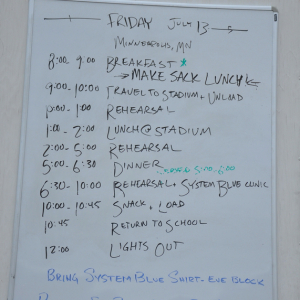 FRIDAY JULY 13
MINNEAPOLIS, MN
8:00 - 9:00 BREAKFAST *
→ MAKE SACK LUNCH ←
9:00 - 10:00 TRAVEL TO STADIUM + UNLOAD
10:00 - 1:00 REHEARSAL
1:00 - 2:00 LUNCH @ STADIUM
2:00 - 5:00 REHEARSAL
5:00 - 6:30 DINNER 5:00-6:00
6:30 - 10:00 REHEARSAL + SYSTEM BLUE CLINIC
10:00 - 10:45 SNACK + LOAD
10:45 RETURN TO SCHOOL
12:00 LIGHTS OUT
BRING SYSTEM BLUE SHIRT - EVE BLOCK